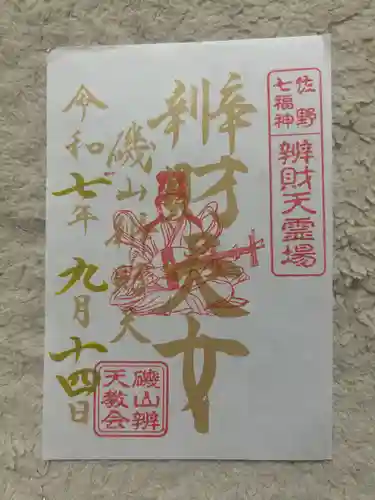 佐野
七福神
辨財天霊場
辨財天女
磯山辨財天
令和七年
九月
十四日
磯山辨
天教会